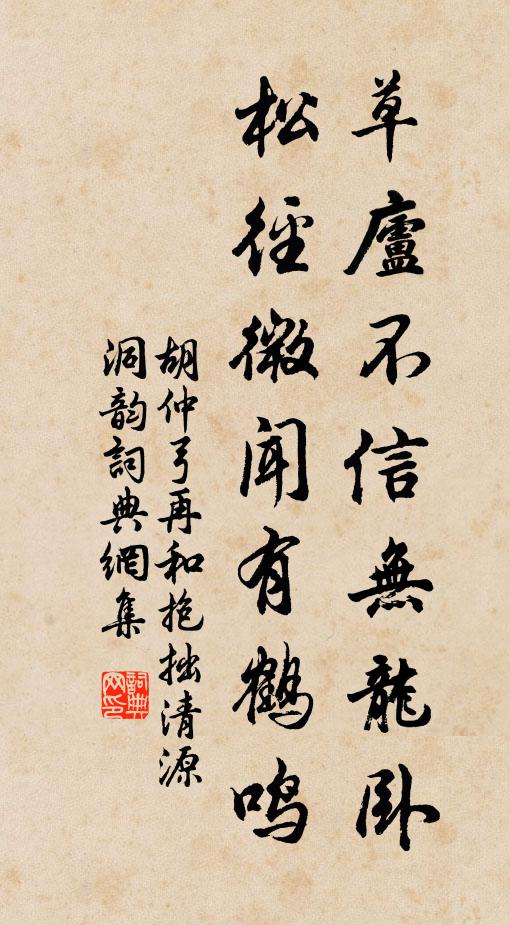 草廬不信無龍卧
松徑微聞有鶴鳴
胡仲弓再和抱拙清源
洞韵詞典網集
詞典网印